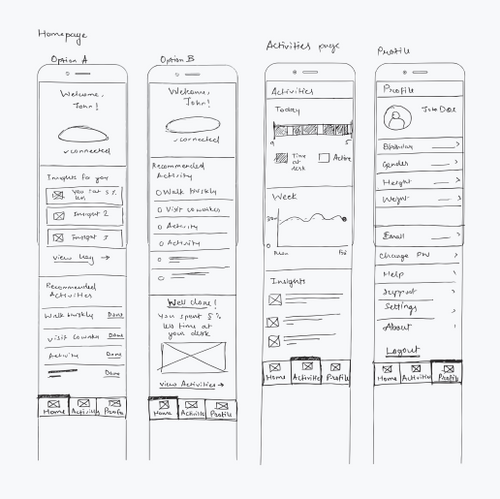 Homepage
Option A
Welcome,
John!
✓connected
Insights for you
You sat 5%
less
Insight 2
Insight 3
View
Recommended
Activities
Walk briskly Done
Visit coworker Done
Activity Done
Done
Home Activities Profile
Option B
Welcome,
John!
✓connected
Recommended
Activity
Walk briskly
Visit coworker
Activity
Activity
Well done!
You spent 5%
less time at
your desk
View Activities →
Home Activities Profile
Activities page
Activities
Today
9 5
Time
at
desk
Active
Week
Mon Fri
Insights
Home Activities Profile
Profile
Profile
John Doe
Birthday
Gender
Height
Weight
Email
Change PW
Help
Support
Settings
About
Logout
Home Activities Profile